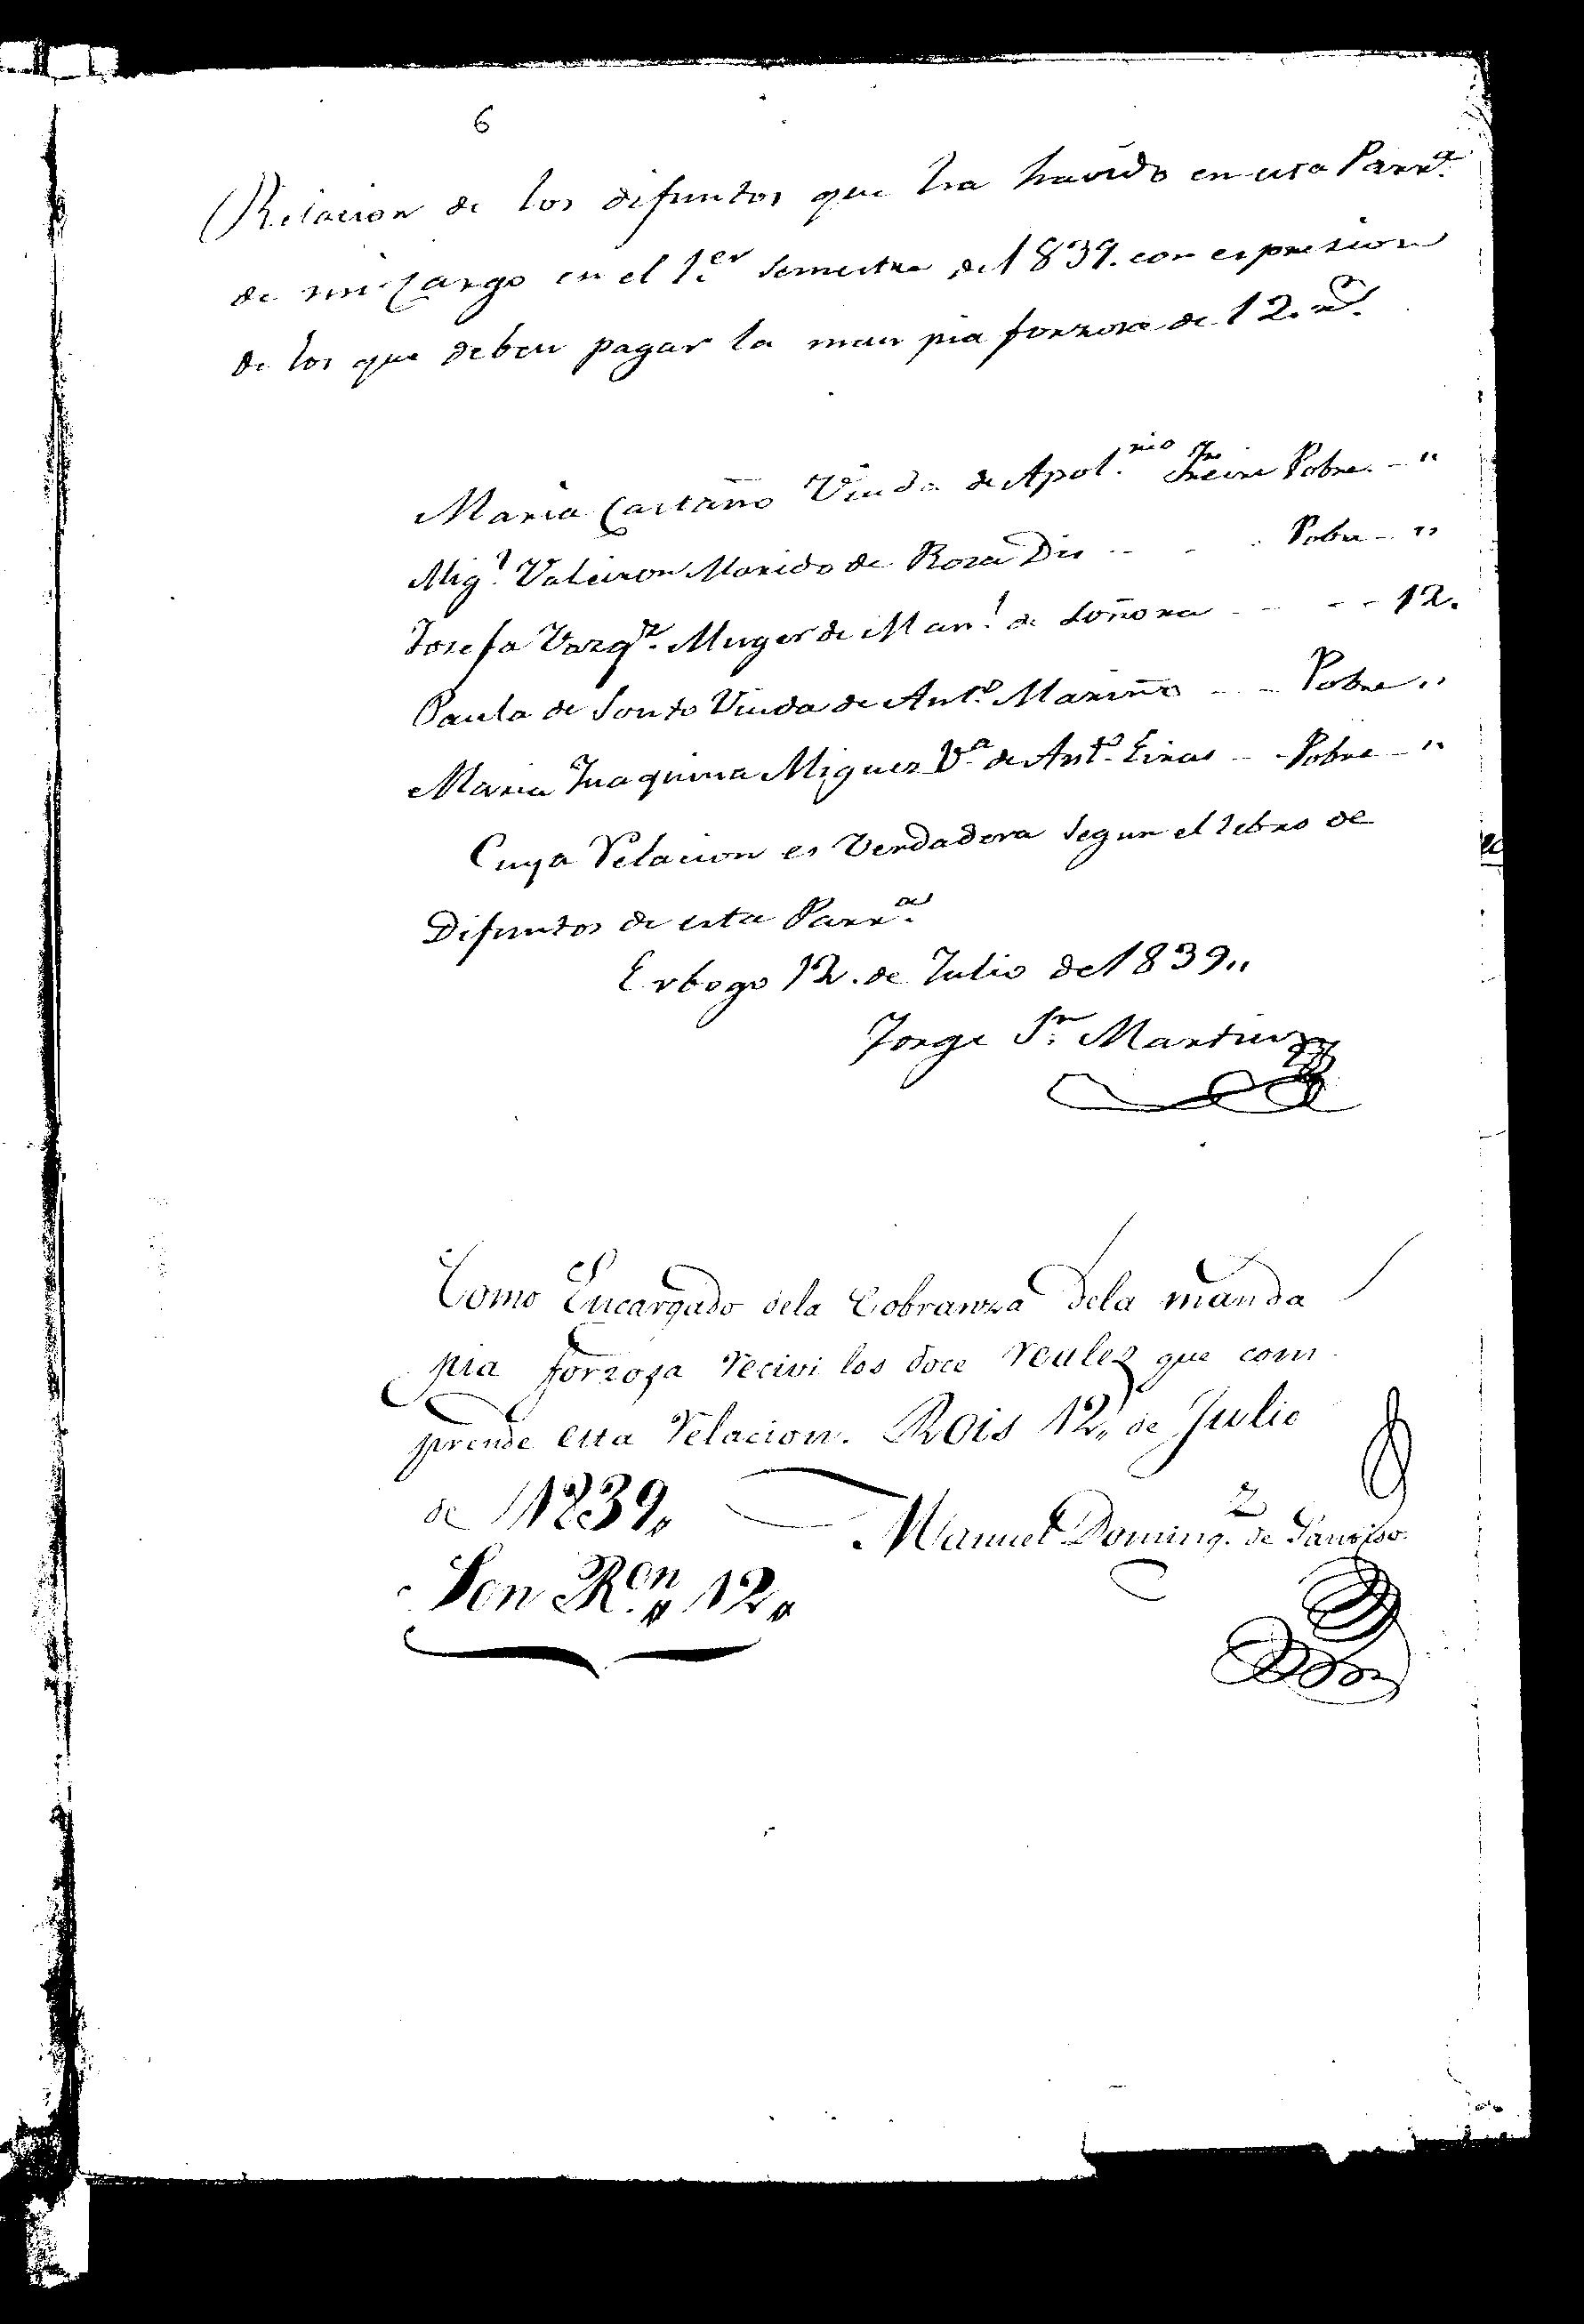 6
Relacion de los difuntos que ha havido en esta Parr.a
de mi Cargo en el 1.er Semestre de 1839. con espresion
de los que deben pagar la man pia forzosa de 12. r.s
Maria Castaño Viuda de Apol.nio Freire Pobre - "
Mig.l Valeiron Marido de Rosa Dis - - - Pobre - "
Josefa Vazq.z Muger de Man.l de Soñora - - - 12.
Paula de Souto Viuda de Ant.o Mariño - - Pobre "
Maria Juaquina Miguez V.a de Ant.o Eiras - Pobre - "
Cuya Relacion es Verdadera segun el libro de
Difuntos de esta Parr.a
Erbogo 12. de Julio de 1839"
Jorge Martinez
Como Encargado dela Cobranza dela manda
pia forzosa recivi los doce reales que com
prende esta relacion. Rois 12" de Julio
de 1839"
Manuel Doming.z de
Son R.on " 12"